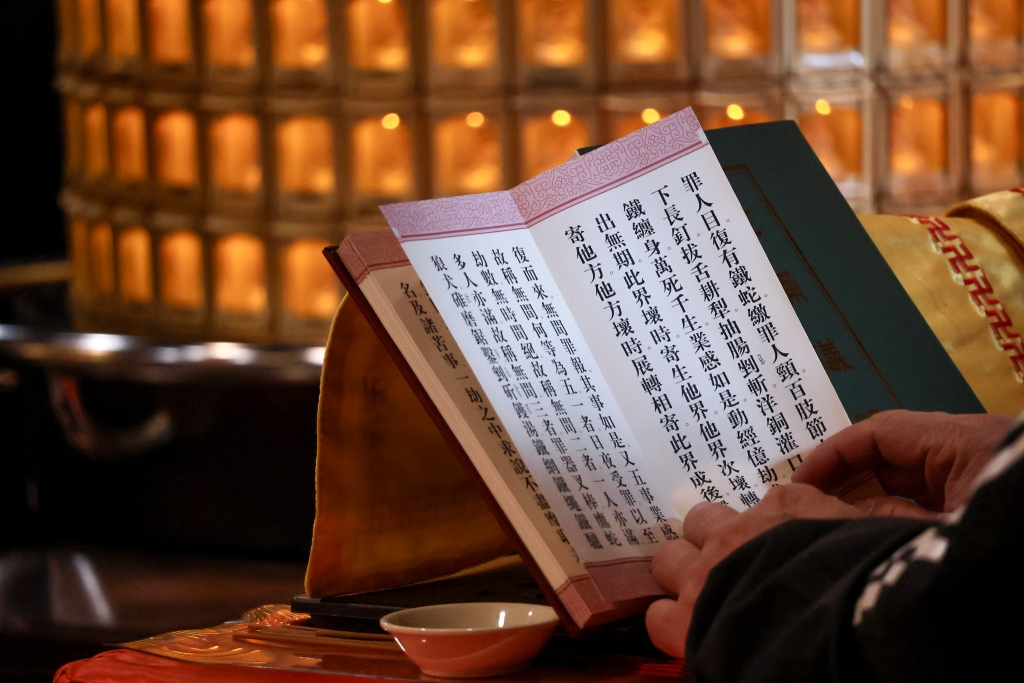 罪人目。復有鐵蛇繳罪人頸。百肢節
下長釘。拔舌耕犁。抽腸剉斬。洋銅灌口
鐵纏身。萬死千生。業感如是。動經億劫
出無期。此界壞時。寄生他界。他界次壞。轉
寄他方。他方壞時。展轉相寄。此界成後
復而來。無間罪報。其事如是。又五事業感
故稱無間。何等為五。一者日夜受罪。以至
劫數。無時間絕。故稱無間。二者一人亦滿
多人亦滿。故稱無間。三者罪器叉棒。鷹蛇
狼犬。碓磨鋸鑿。剉斫鑊湯。鐵網鐵繩。鐵驢
名及諸苦事。一劫之中。求說不盡。摩耶